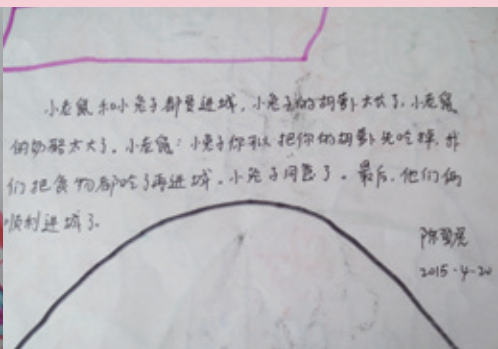 小老鼠和小兔子都要进城,小兔子的胡萝卜太大了,小老鼠
的奶酪太大了。小老鼠:小兔子你可以把你的胡萝卜先吃掉,我
们把食物都吃了再进城。小兔子同意了。最后,他们俩
顺利进城了。
陈
2015·4·20